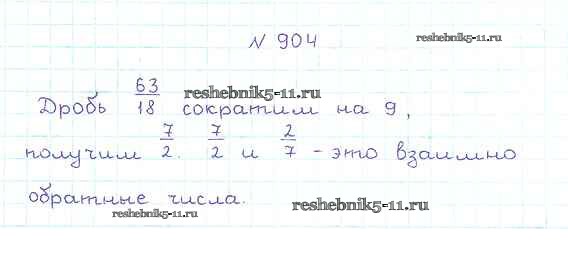 № 904
reshebnik5-11.ru
Дробь 63/18 сократим на 9,
reshebnik5-11.ru
получим 7/2. 7/2 и 2/7 - это взаимно
обратные числа.
reshebnik5-11.ru
reshebnik5-11.ru